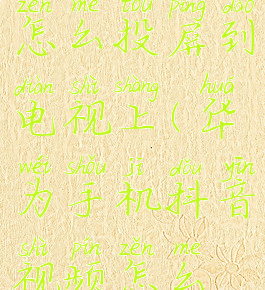 zěn me tóu píng dào
怎么投屏到
diàn shì shàng huá
电视上(华
wéi shǒu jī dǒu yīn
为手机抖音
shì pín zěn me
视频怎么